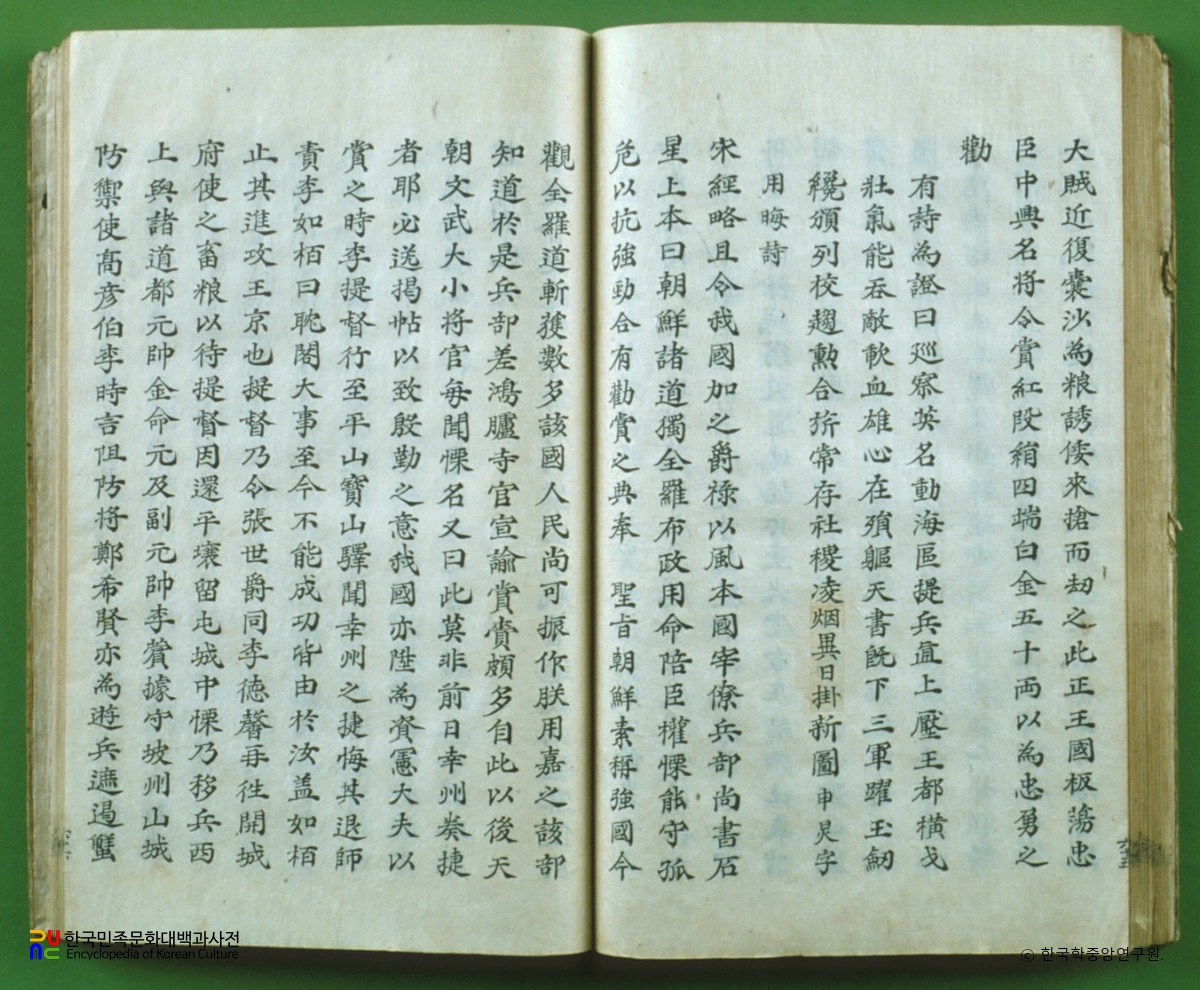 大賊近復囊沙為粮誘倭來搶而刼之此正王國板蕩忠
臣中興名将令賞紅段絹四端白金五十両以為忠勇之
勸
有詩為證曰巡察英名動海區提兵直上壓王都橫戈
壯氣能吞敵歃血雄心在殞軀天書旣下三軍躍玉劒
纔頒列校趨勲合旂常存社稷凌烟異日掛新圖申炅字
用晦詩
宋經略且令我國加之爵祿以風本國宰僚兵部尚書石
星上本曰朝鮮諸道獨全羅布政用命陪臣權慄能守孤
危以抗強勁合有勸賞之典奉 聖旨朝鮮素稱強國今
觀全羅道斬獲數多該國人民尚可振作朕用嘉之該部
知道於是兵部差鴻臚寺官宣諭賞賚頗多自此以後天
朝文武大小将官每聞慄名又曰此莫非前日幸州奏捷
者耶必送揭帖以致殷勤之意我國亦陞為資憲大夫以
賞之時李提督行至平山寶山驛聞幸州之捷悔其退師
責李如栢曰耽閣大事至今不能成功皆由於汝盖如栢
止其進攻王京也提督乃令張世爵同李德馨再徃開城
府使之畜粮以待提督因還平壤留屯城中慄乃移兵西
上與諸道都元帥金命元及副元帥李薲據守坡州山城
防禦使高彦伯李時言阻防将鄭希賢亦為遊兵遮遏蟹
한국민족문화대백과사전
Encyclopedia of Korean Culture
© 한국학중앙연구원.